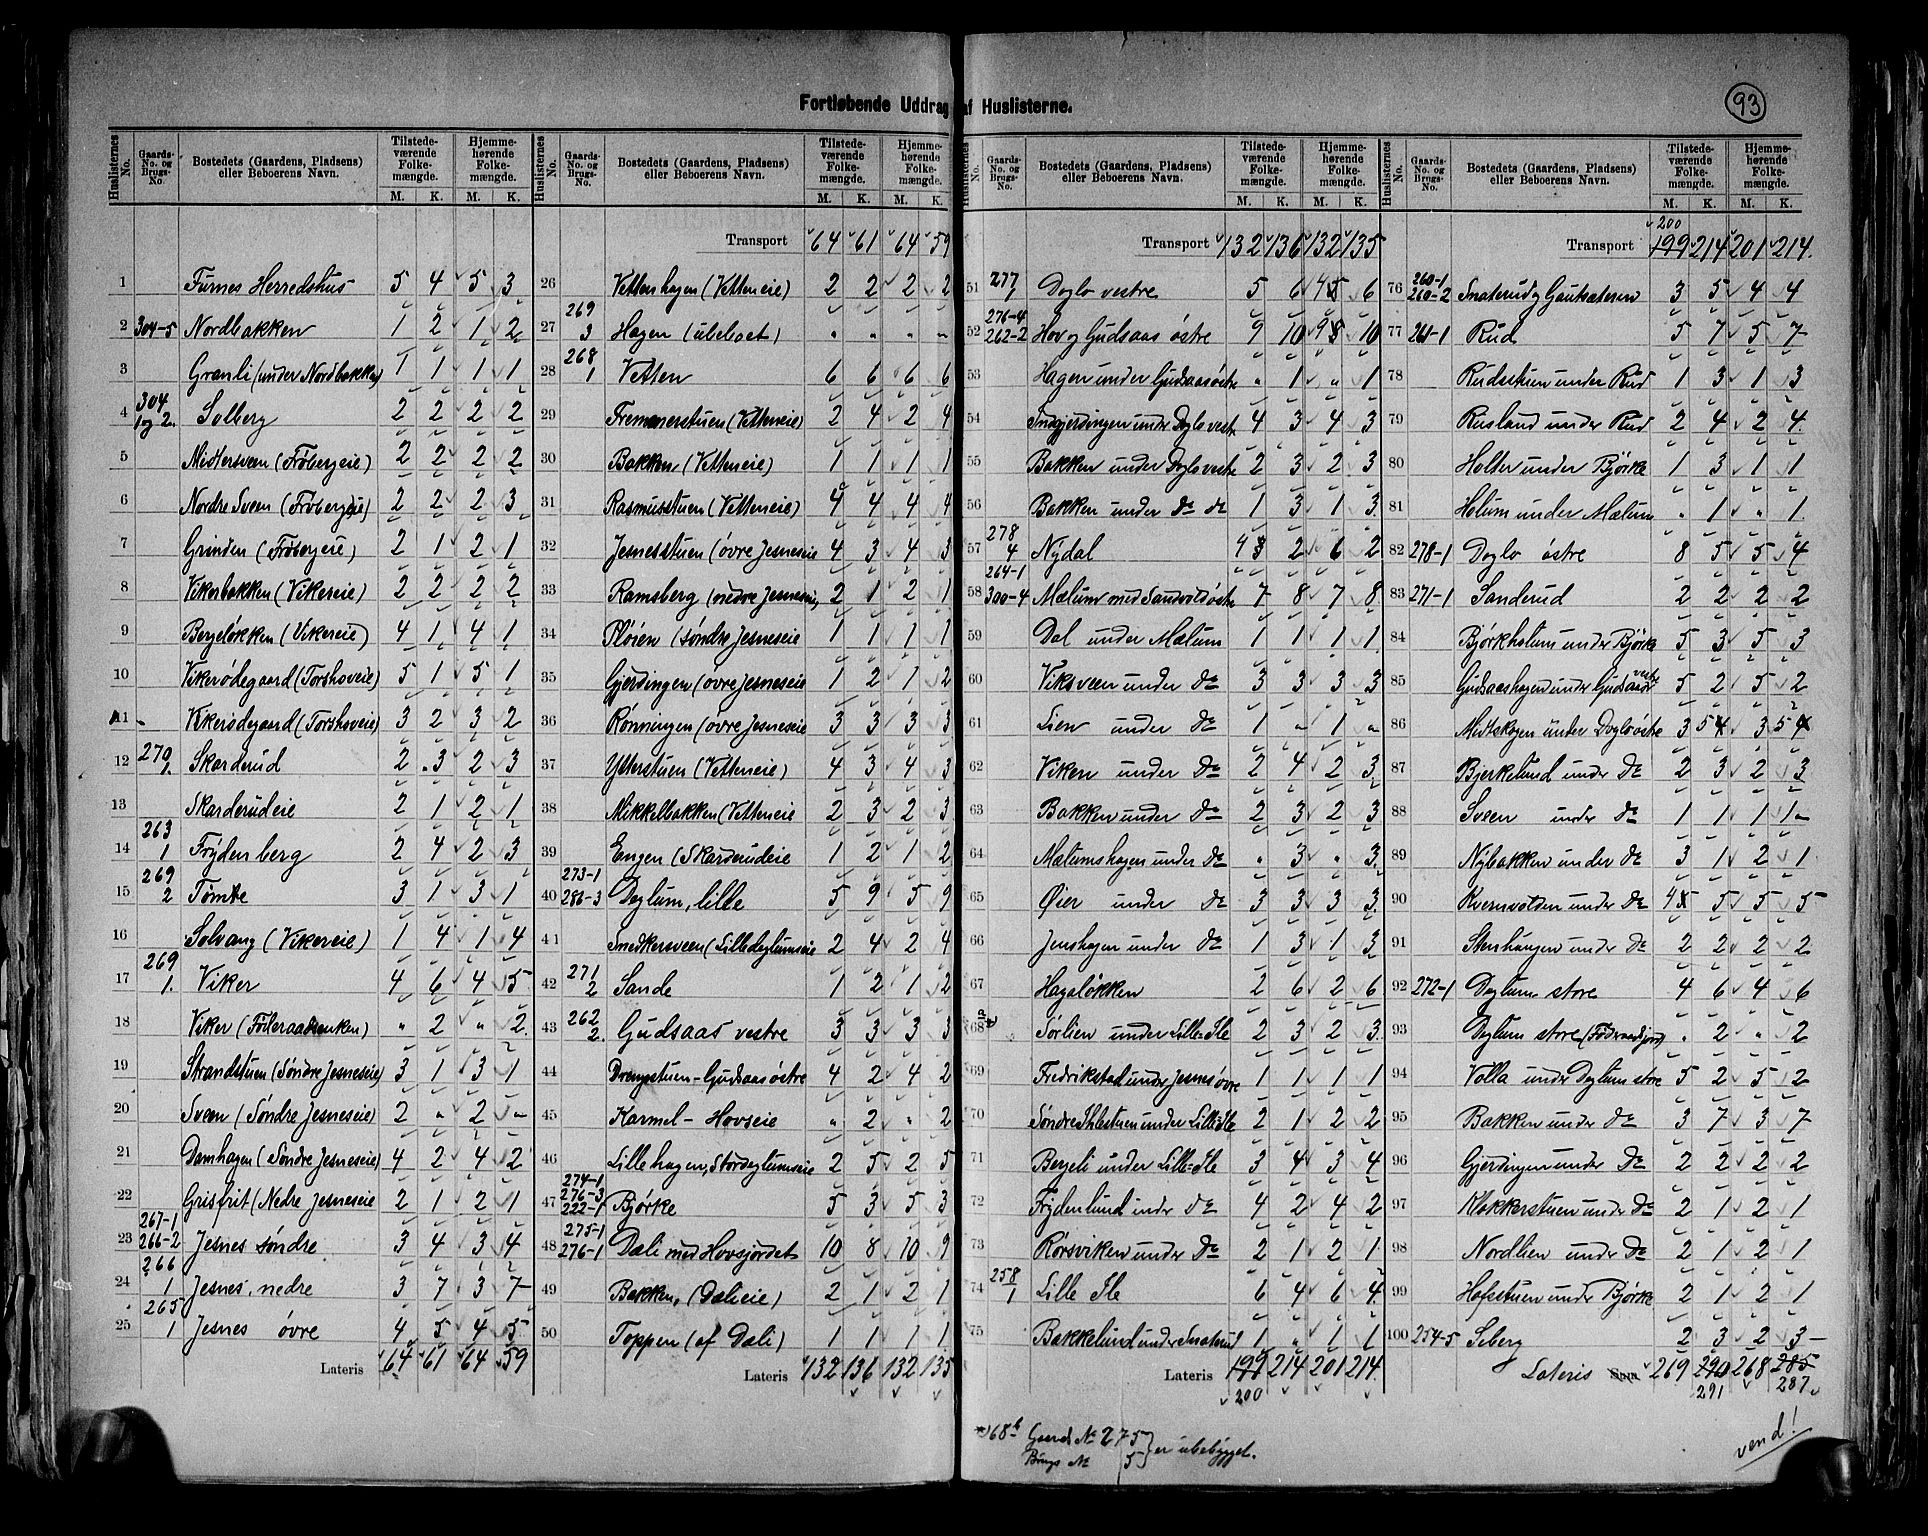 93
Fortløbende Uddrag af Huslisterne.
Huslisternes No. Gaards-No. og Brugs-No. Bostedets (Gaardens, Pladsens) eller Beboerens Navn. Tilstedeværende Folkemængde. M. K. Hjemmehørende Folkemængde. M. K.
1 Furnes Herredshus 5 4 5 3
2 304-5 Nordbakken 1 2 1 2
3 Granli (under Nordbakken) 1 1 1 1
4 304 1og2. Solberg 2 2 2 2
5 Midtersveen (Frøbergeie) 2 2 2 2
6 Nordre Sveen (Frøbergeie) 2 2 2 3
7 Grinden (Frøbergeie) 2 1 2 1
8 Vikerbakken (Vikereie) 2 2 2 2
9 Bergeløkken (Vikereie) 4 1 4 1
10 Vikerødegaard (Torshoveie) 5 1 5 1
11 Vikerødegaard (Torshoveie) 3 2 3 2
12 270 1. Skarderud 2 3 2 3
13 Skarderudeie 2 1 2 1
14 263 1 Frydenberg 2 4 2 3
15 269 2 Tømte 3 1 3 1
16 Solvang (Vikereie) 1 4 1 4
17 269 1. Viker 4 6 4 5
18 Viker (Føderaadsenken) " 2 " 2
19 Strandstuen (Søndre Jesneseie) 3 1 3 1
20 Sveen (Søndre Jesneseie) 2 " 2 "
21 Damhagen (Søndre Jesneseie) 4 2 4 2
22 Grisfrit (Nedre Jesneseie 2 1 2 1
23 267-1 266-2 Jesnes søndre 3 4 3 4
24 266 1 Jesnes, nedre 3 7 3 7
25 265 1 Jesnes øvre 4 5 4 5
Lateris 64 61 64 59
Huslisternes No. Gaards-No. og Brugs-No. Bostedets (Gaardens, Pladsens) eller Beboerens Navn. Tilstedeværende Folkemængde. M. K. Hjemmehørende Folkemængde. M. K.
Transport 64 61 64 59
26 Vettenhagen (Vetteneie) 2 2 2 2
27 269 3 Hagen (ubeboet) " " " "
28 268 1 Vetten 6 6 6 6
29 Fremmerstuen (Vetteneie) 2 4 2 4
30 Bakken (Vetteneie) 1 1 1 1
31 Rasmusstuen (Vetteneie) 4 4 4 4
32 Jesnesstuen (øvre Jesneseie 4 3 4 3
33 Ramsberg (nedre Jesneseie) 2 1 2 1
34 Pløien (søndre Jesneseie 1 1 1 1
35 Gjerdingen (øvre Jesneseie 1 2 1 2
36 Rønningen (øvre Jesneseie 3 3 3 3
37 Ytterstuen (Vetteneie) 4 3 4 3
38 Mikkelbakken (Vetteneie 2 3 2 3
39 Engen (Skarderudeie 1 2 1 2
40 273-1 286-3 Deglum, lille 5 9 5 9
41 Snedkersveen (Lilledeglumseie 2 4 2 4
42 271 2 Sande 1 2 1 2
43 262 2. Gudsaas vestre 3 3 3 3
44 Drengstuen-Gudsaas østre 4 2 4 2
45 Karmel - Hovseie " 2 " 2
46 Lillehagen, Stordeglumseie 2 5 2 5
47 274-1 276-3 222-1 Bjørke 5 3 5 3
48 275-1 276-1 Dæli med Hovsjordet 10 8 10 9
49 Bakken, (Dælieie) 2 1 2 1
50 Toppen (af Dæli) 1 1 1 1
Lateris 132 136 132 135
Huslisternes No. Gaards-No. og Brugs-No. Bostedets (Gaardens, Pladsens) eller Beboerens Navn. Tilstedeværende Folkemængde. M. K. Hjemmehørende Folkemængde. M. K.
Transport 132 136 132 135
51 277 1 Doglo vestre 5 6 5 6
52 276-4 262-2 Hov og Gudsaas østre 9 10 9 10
53 Hagen under Gudsaas østre " 1 " 1
54 Indgjerdingen under Doglo vestre 4 3 4 3
55 Bakken under Doglo vestre 2 3 2 3
56 Bakken under do do 1 3 1 3
57 278 4 Nydal 4 2 6 2
58 264-1 300-4 Mælum med Sandvold østre 7 8 7 8
59 Dal under Mælum 1 1 1 1
60 Viksveen under do 3 3 3 3
61 Lien under do 1 " 1 "
62 Viken under do 2 4 2 3
63 Bakken under do 2 3 2 3
64 Mælumshagen under do " 3 " 3
65 Øier under do 3 3 3 3
66 Jenshagen under do 1 3 1 3
67 Hagaløkken 2 6 2 6
68 a Sørlien under Lille-Ile 2 3 2 3
69 Fredrikstad under Jesnes øvre 1 1 1 1
70 Søndre Ilestuen under Lille-Ile 2 1 2 2
71 Bergeli under Lille-Ile 3 4 3 4
72 Frydenlund under do 4 2 4 2
73 Rørsviken under do 2 1 2 1
74 258 1 Lille Ile 6 4 6 4
75 Bakkelund under Snaterud 1 " 1 1
Lateris 199 214 201 214
200
Huslisternes No. Gaards-No. og Brugs-No. Bostedets (Gaardens, Pladsens) eller Beboerens Navn. Tilstedeværende Folkemængde. M. K. Hjemmehørende Folkemængde. M. K.
200
Transport 199 214 201 214.
76 260-1 260-2 Snaterud og Gautsæteren 3 5 4 4
77 261-1 Rud 5 7 5 7
78 Rudsstuen under Rud 1 3 1 3
79 Rusland under Rud 2 4 2 4
80 Holter under Bjørke 1 3 1 1
81 Holum under Mælum " 1 " 1
82 278-1 Doglo østre 8 5 5 4
83 271-1 Sanderud 2 2 2 2
84 Bjørkholum under Bjørke 5 3 5 3
85 Gudsaashagen under Gudsaas vestre 5 2 5 2
86 Midtskogen under Doglo østre 3 5 4 3 5 4
87 Bjerkelund under do 2 3 2 3
88 Sveen under do 1 1 1 1
89 Nybakken under do 3 1 2 1
90 Kvernvolden under do 4 5 5 5
91 Stenhaugen under do 2 2 2 2
92 272-1 Deglum store 4 6 4 6
93 Deglum store (Føderaadsjord) " 2 " 2
94 Volla under Deglum store 5 2 5 2
95 Bakken under do 3 7 3 7
96 Gjerdingen under do 2 2 2 2
97 Klokkerstuen under do 2 1 2 1
98 Nordlien under do 2 1 2 1
99 Hofsstuen under Bjørke 2 1 2 1
100 254-5 Seberg 2 3 2 3
Lateris Sum 269 290 268 285
291 287
68b Gaards No 275 } er ubebygget.
Brugs No 5
vend!